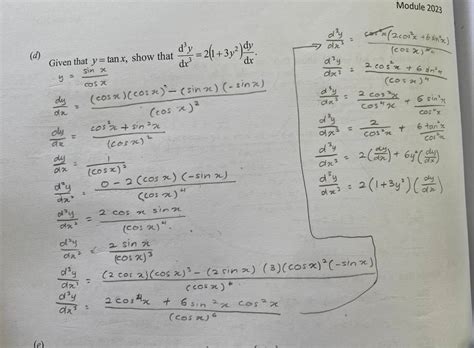 Module 2023
(d) Given that y = tan x, show that d³y/dx³ = 2(1+3y²) dy/dx.
y = sin x / cos x
dy/dx = (cos x)(cos x) - (sin x)(-sin x) / (cos x)²
dy/dx = cos²x + sin²x / (cos x)²
dy/dx = 1 / (cos x)²
d²y/dx² = 0 - 2(cos x)(-sin x) / (cos x)⁴
d²y/dx² = 2 cos x sin x / (cos x)⁴
d²y/dx² = 2 sin x / (cos x)³
d³y/dx³ = (2 cos x)(cos x)³ - (2 sin x)(3)(cos x)²(-sin x) / (cos x)⁶
d³y/dx³ = 2 cos⁴x + 6 sin²x cos²x / (cos x)⁶
d³y/dx³ = cos²x (2cos²x + 6 sin²x) / (cos x)⁶
d³y/dx³ = 2 cos²x + 6 sin²x / (cos x)⁴
d³y/dx³ = 2 cos²x / cos⁴x + 6 sin²x / cos⁴x
d³y/dx³ = 2 / cos²x + 6 tan²x / cos²x
d³y/dx³ = 2(dy/dx) + 6y²(dy/dx)
d³y/dx³ = 2(1+3y²)(dy/dx)
(e)